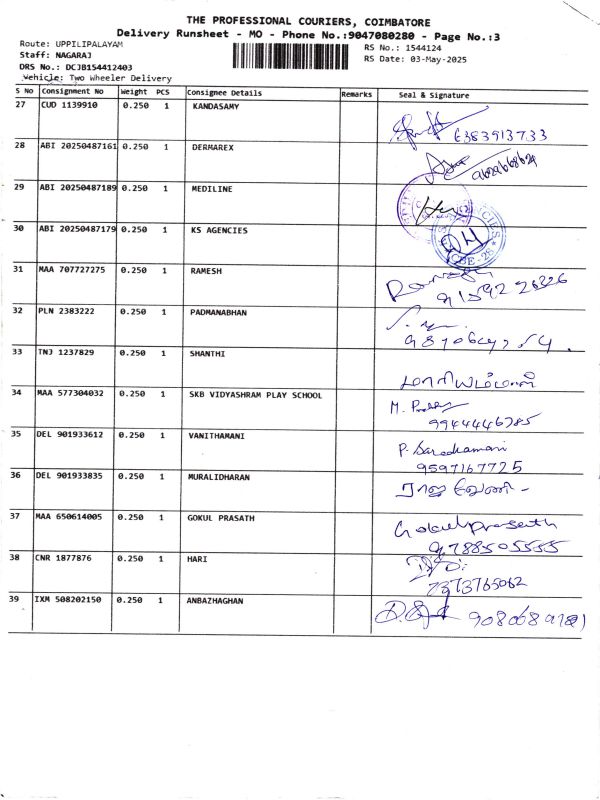 THE PROFESSIONAL COURIERS, COIMBATORE
Delivery Runsheet - MO - Phone No.:9047080280 - Page No.:3
Route: UPPILIPALAYAM
RS No.: 1544124
Staff: NAGARAJ
RS Date: 03-May-2025
DRS No.: DCJB154412403
Vehicle: Two Wheeler Delivery
S No Consignment No Weight PCS Consignee Details Remarks Seal & Signature
27 CUD 1139910 0.250 1 KANDASAMY
6383913733
28 ABI 20250487161 0.250 1 DERMAREX
29 ABI 20250487189 0.250 1 MEDILINE
30 ABI 20250487179 0.250 1 KS AGENCIES
CBE-28
31 MAA 707727275 0.250 1 RAMESH
32 PLN 2383222 0.250 1 PADMANABHAN
33 TNJ 1237829 0.250 1 SHANTHI
மாரியம்மாள்
34 MAA 577304032 0.250 1 SKB VIDYASHRAM PLAY SCHOOL
9944446785
35 DEL 901933612 0.250 1 VANITHAMANI
P. Saradhamani
9597167725
36 DEL 901933835 0.250 1 MURALIDHARAN
ராஜ வேணி -
37 MAA 650614005 0.250 1 GOKUL PRASATH
Gokulprasath
9788505555
38 CNR 1877876 0.250 1 HARI
7373765062
39 IXM 508202150 0.250 1 ANBAZHAGHAN